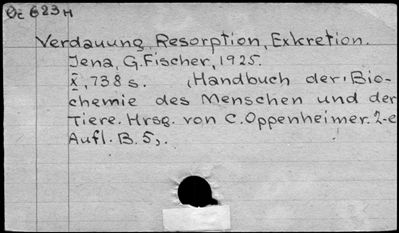 Öc 623 H
Verdauung, Resorption, Exkretion.
Jena, G. Fischer, 1925.
X, 738 s. (Handbuch der Bio-
chemie des Menschen und der
Tiere. Hrsg. von C. Oppenheimer. 2-e
Aufl. B. 5).